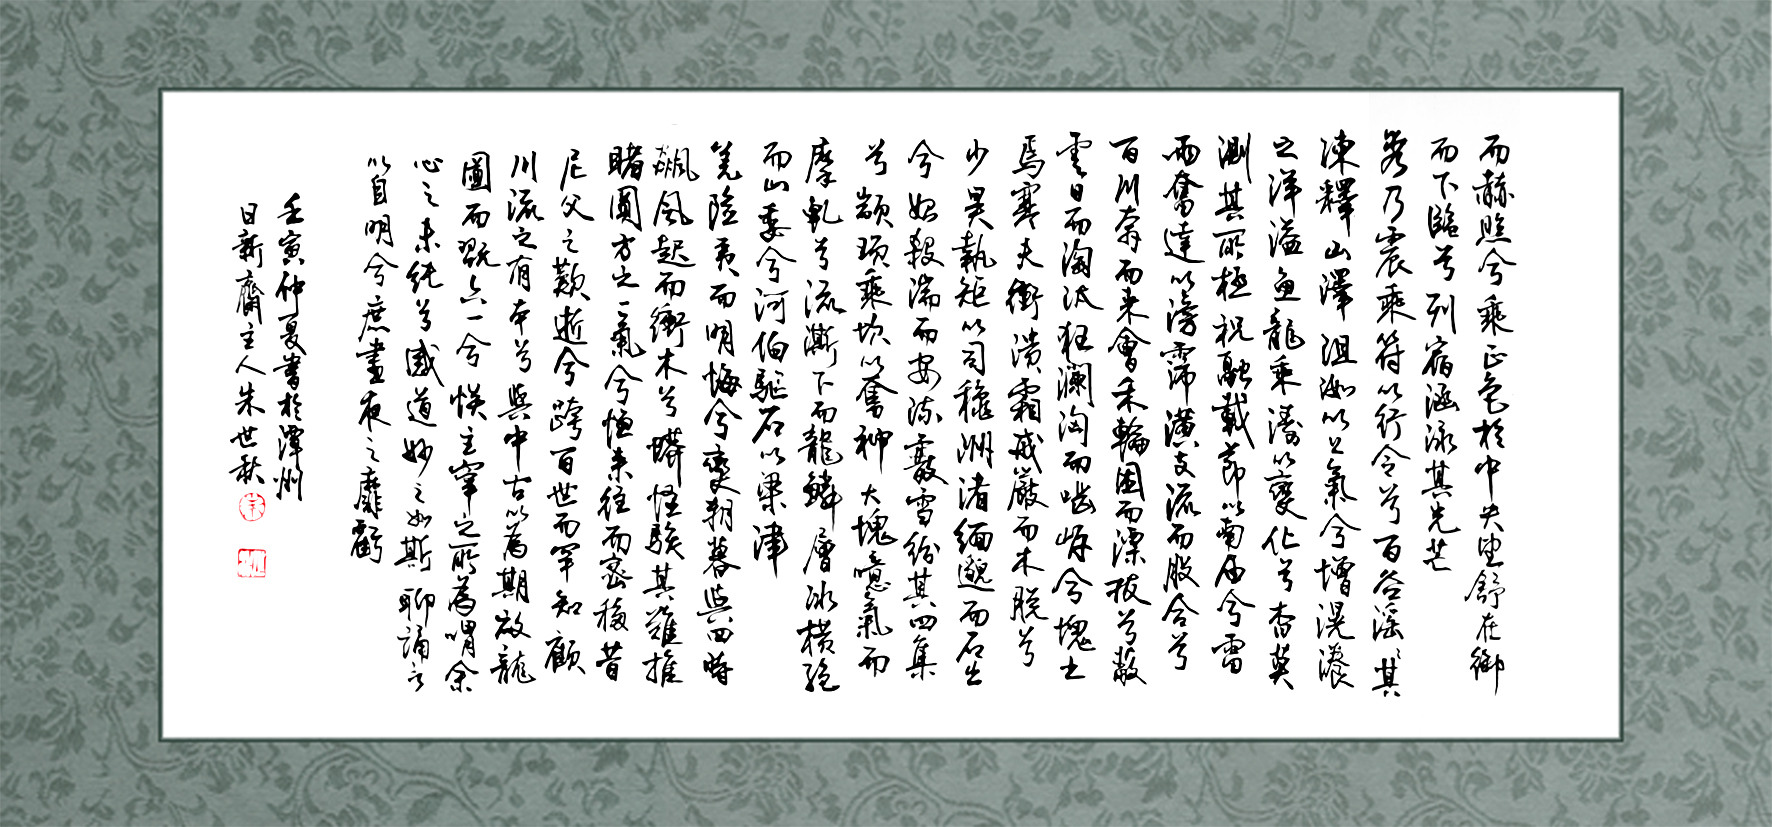 而赫照兮乘正色於中央望舒在御
而下臨兮列宿涵泳其光芒
若乃震乘符以行令兮百谷滛滛其
凍釋山澤沮洳以上氣兮增滉瀁
之洋溢魚龍乘濤以變化兮杳莫
測其所極祝融載節以南届兮雷
雨奮達以滂霈潢支流而股合兮
百川奔而來會禾輪囷而漂拔兮蔽
雲日而淘汰狂瀾洶而嚙垠兮塊土
焉塞夫衝潰霜戒嚴而木脱兮
少昊執矩以司穫洲渚緬邈而石出
兮始殺湍而安流霰雪紛其四集
兮顓頊乘坎以奮神大塊噫氣而
摩軋兮流澌下而龍鱗層冰橫絶
而山委兮河伯驅石以梁津
羌險夷而明悔兮變朔暮與四時
飆風起而衝木兮蟒怪駭其難推
睹圓方之一氣兮恒來往而密移昔
尼父之歎逝兮跨百世而罕知顧
川流之有本兮與中古以為期故龍
圖而翫六一兮悞主宰之所為喟余
心之未純兮感道妙之如斯聊誦言
以自明兮庶晝夜之靡虧
壬寅仲夏書於潭州
日新齋主人朱世秋